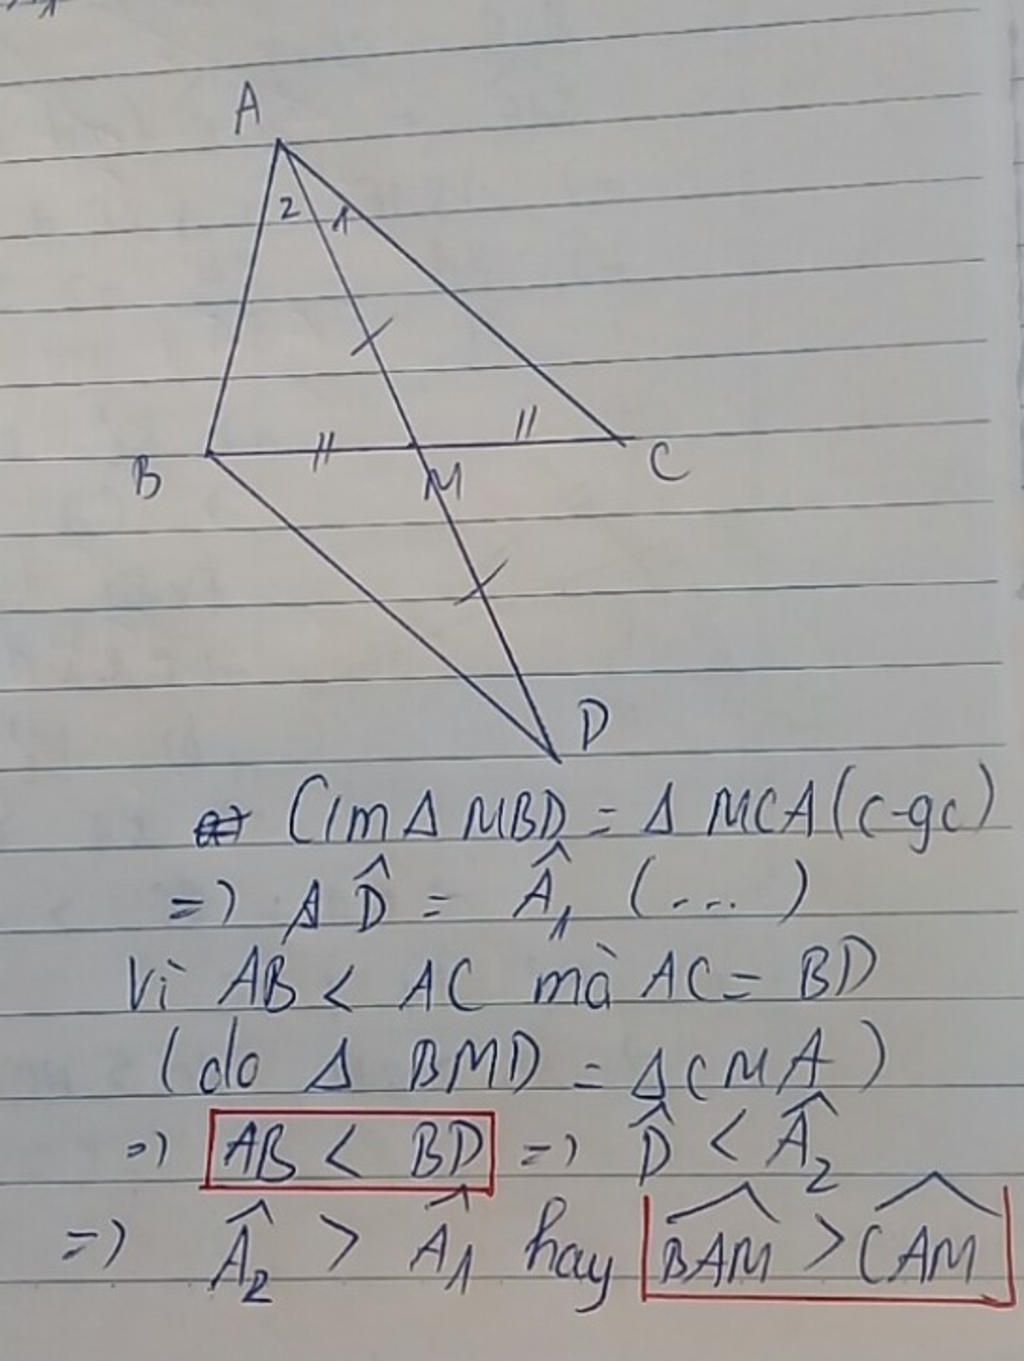 A
2 1
B M C
D
C/m Δ MBD = Δ MCA (c-gc)
=> D̂ = Â₁ (...)
Vì AB < AC mà AC = BD
(do Δ BMD = Δ CMA)
=> AB < BD => D̂ < Â₂
=> Â₂ > Â₁ hay BAM > CAM